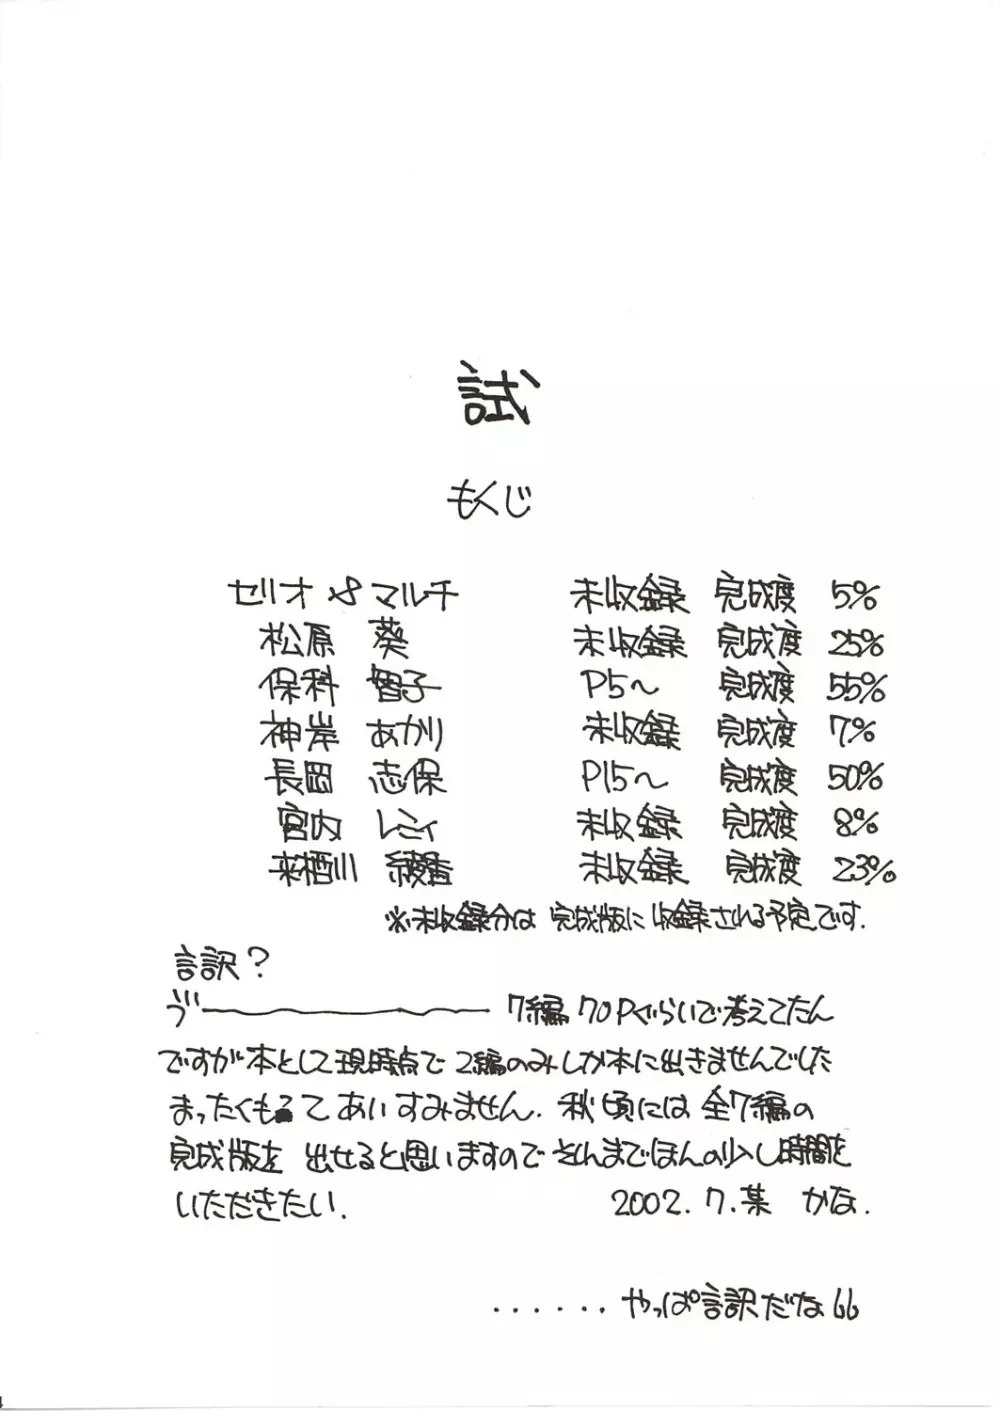 試
もくじ
セリオ & マルチ 未収録 完成度 5%
松原 葵 未収録 完成度 25%
保科 智子 P5〜 完成度 55%
神岸 あかり 未収録 完成度 7%
長岡 志保 P15〜 完成度 50%
宮内 レミィ 未収録 完成度 8%
来栖川 綾香 未収録 完成度 23%
※未収録分は 完成版に収録される予定です.
言訳?
う゛ 7編 70Pぐらいで考えてたん
ですが本として現時点で2編のみしか本に出きませんでした
まったくもって あいすみません. 秋頃には 全7編の
完成版を 出せると思いますので それまでほんの少し時間を
いただきたい. 2002.7.某 かな.
......やっぱ言訳だな